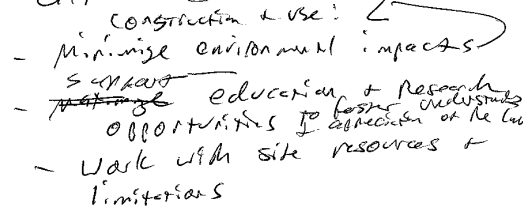 construction & use:
- Minimize environmental impacts
support
- maximize education & Research
opportunities to foster understanding
& appreciation of the
- Work with site resources &
limitations